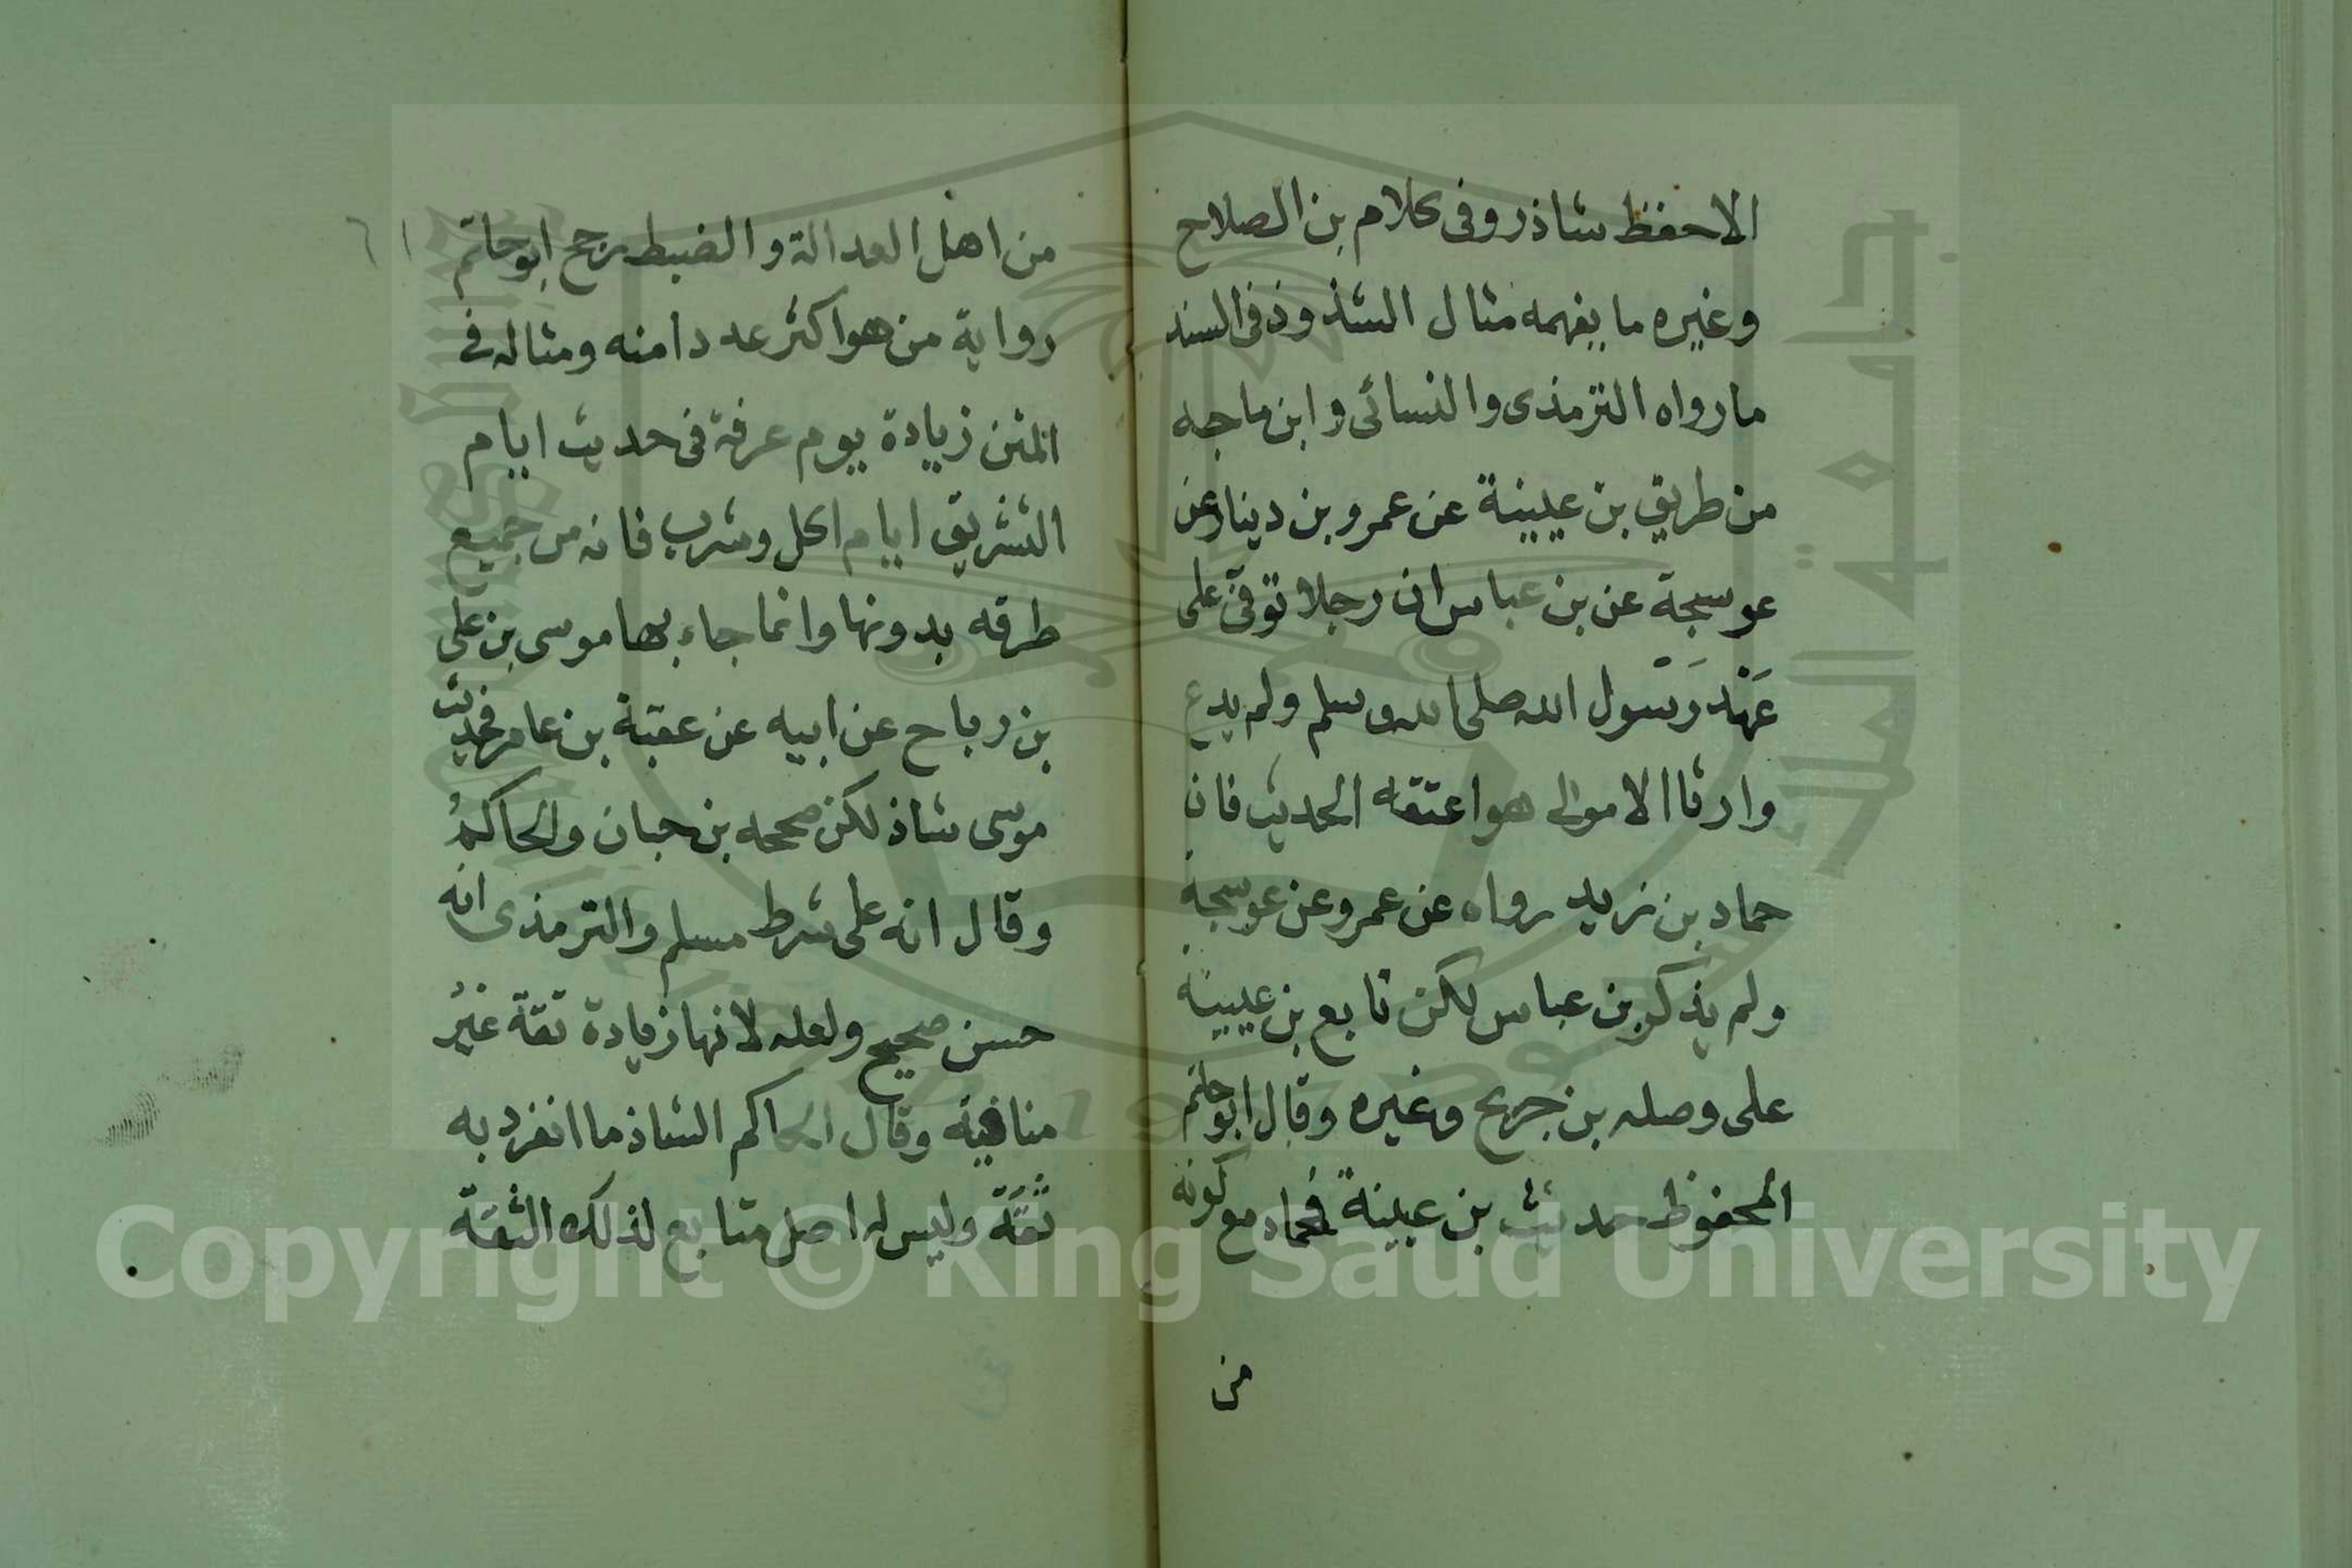 الاحفظ شاذ وفى كلام بن الصلاح
وغيره ما يفهمه مثال الشذوذ فى السند
ما رواه الترمذى والنسائى وابن ماجه
من طريق بن عيينة عن عمرو بن دينار عن
عوسجة عن بن عباس ان رجلا توفى على
عَهْد رَسُول الله صلى الله وسلم ولم يدع
وارثا الا موالى هو اعتقه الحديث فان
حماد بن زيد رواه عن عمرو عن عوسجة
ولم يذكر بن عباس لكن تابع بن عيينة
على وصله بن جريج وغيره وقال ابو حاتم
المحفوظ حديث بن عيينة فحماد مع كونه
من
من اهل العدالة والضبط رجح ابو حاتم
رواية من هو اكثر عددا منه ومثاله فى
المتن زيادة يوم عرفة فى حديث ايام
التشريق ايام اكل وشرب فانه من جميع
طرقه بدونها وانما جاء بها موسى بن على
بن رباح عن ابيه عن عقبة بن عامر فحديث
موسى شاذ لكن صححه بن حبان والحاكم
وقال انه على شرط مسلم والترمذى انه
حسن صحيح ولعله لانها زيادة ثقة غير
منافية وقال الحاكم الشاذ ما انفرد به
ثقة وليس له اصل متابع لذلك الثقة
Copyright © King Saud University